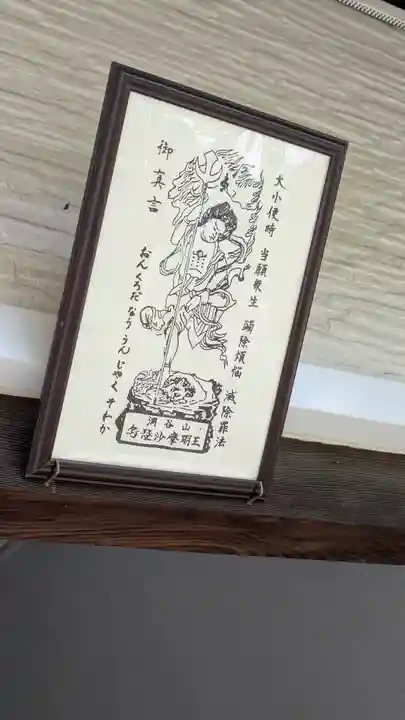 大小便時 当願衆生 蠲除煩悩 滅除罪法
御真言
おんくろだなううんじゃくそわか
洞谷山
烏蒭沙摩明王